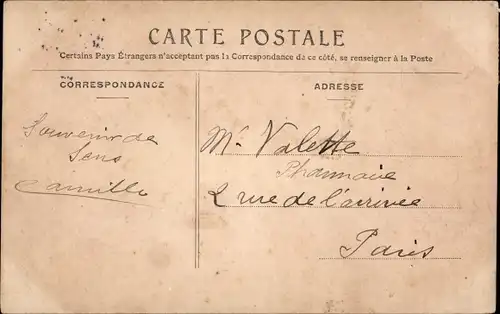 CARTE POSTALE
Certains Pays Étrangers n'acceptent pas la Correspondance de ce côté, se renseigner à la Poste
CORRESPONDANCE
Souvenir de
Sens
Camille
ADRESSE
Mr Valette
Pharmacie
2 rue de l'arrivée
Paris